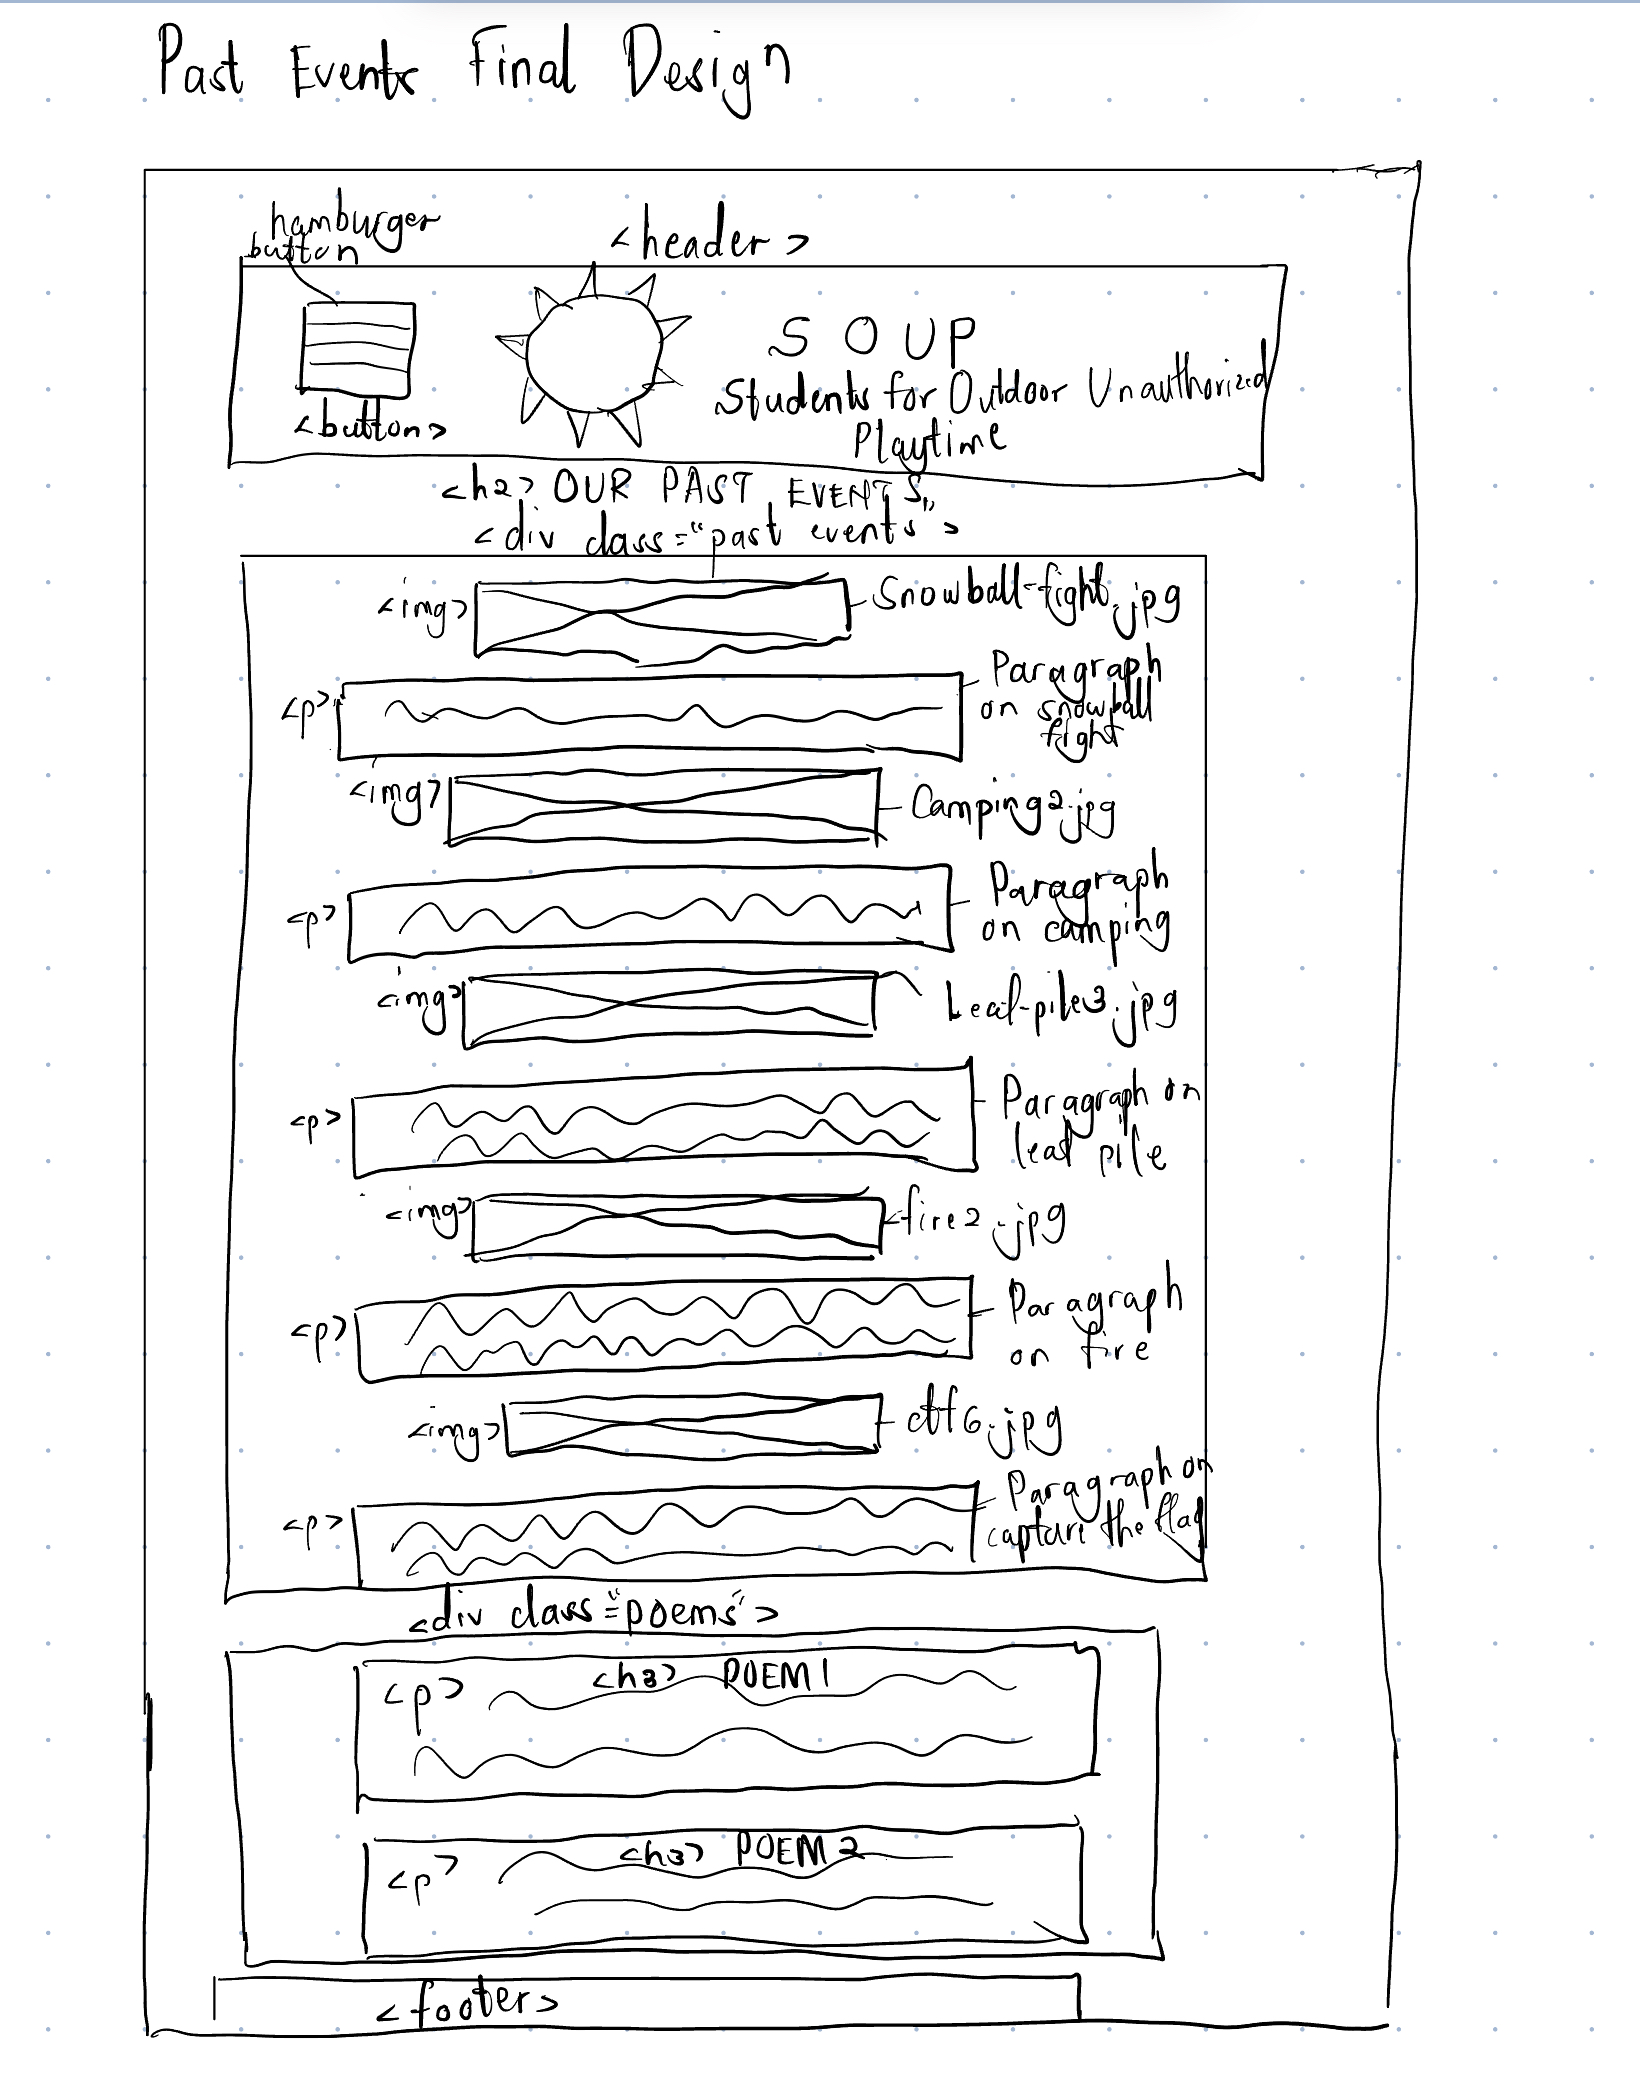 Past Events Final Design
hamburger
button
<header>
SOUP
Students for Outdoor Unauthorized
Playtime
<button>
<h2> OUR PAST EVENTS
<div class="past events">
<img>
Snowball-fight.jpg
<p>
Paragraph
on snowball
fight
<img>
Camping2.jpg
<p>
Paragraph
on camping
<img>
Leaf-pile3.jpg
<p>
Paragraph on
leaf pile
<img>
fire2.jpg
<p>
Paragraph
on fire
<img>
ctf6.jpg
<p>
Paragraph on
capture the flag
<div class="poems">
<h3> POEM 1
<p>
<h3> POEM 2
<p>
<footer>